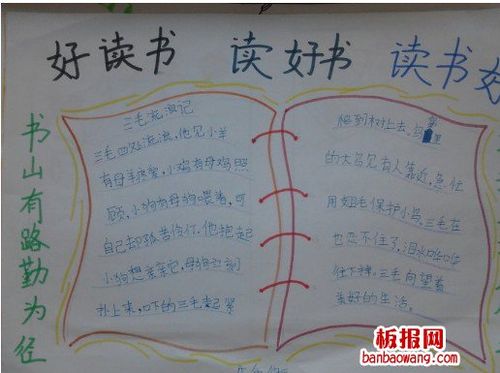 好读书 读好书 读书好
书山有路勤为径
三毛流浪记
三毛四处流浪,他见小羊
有母羊疼爱,小鸡有母鸡照
顾,小狗有母狗喂着,可
自己却孤苦伶仃。他抱起
小狗想亲亲它,母狗立刻
扑上来,吓的三毛赶紧
爬到树上去,鸟窝里
的大鸟见有人靠近,急忙
用翅毛保护小鸟,三毛在
也忍不住了,泪水哗哗
往下掉。三毛向望着
美好的生活。
板报网
banbaowang.com